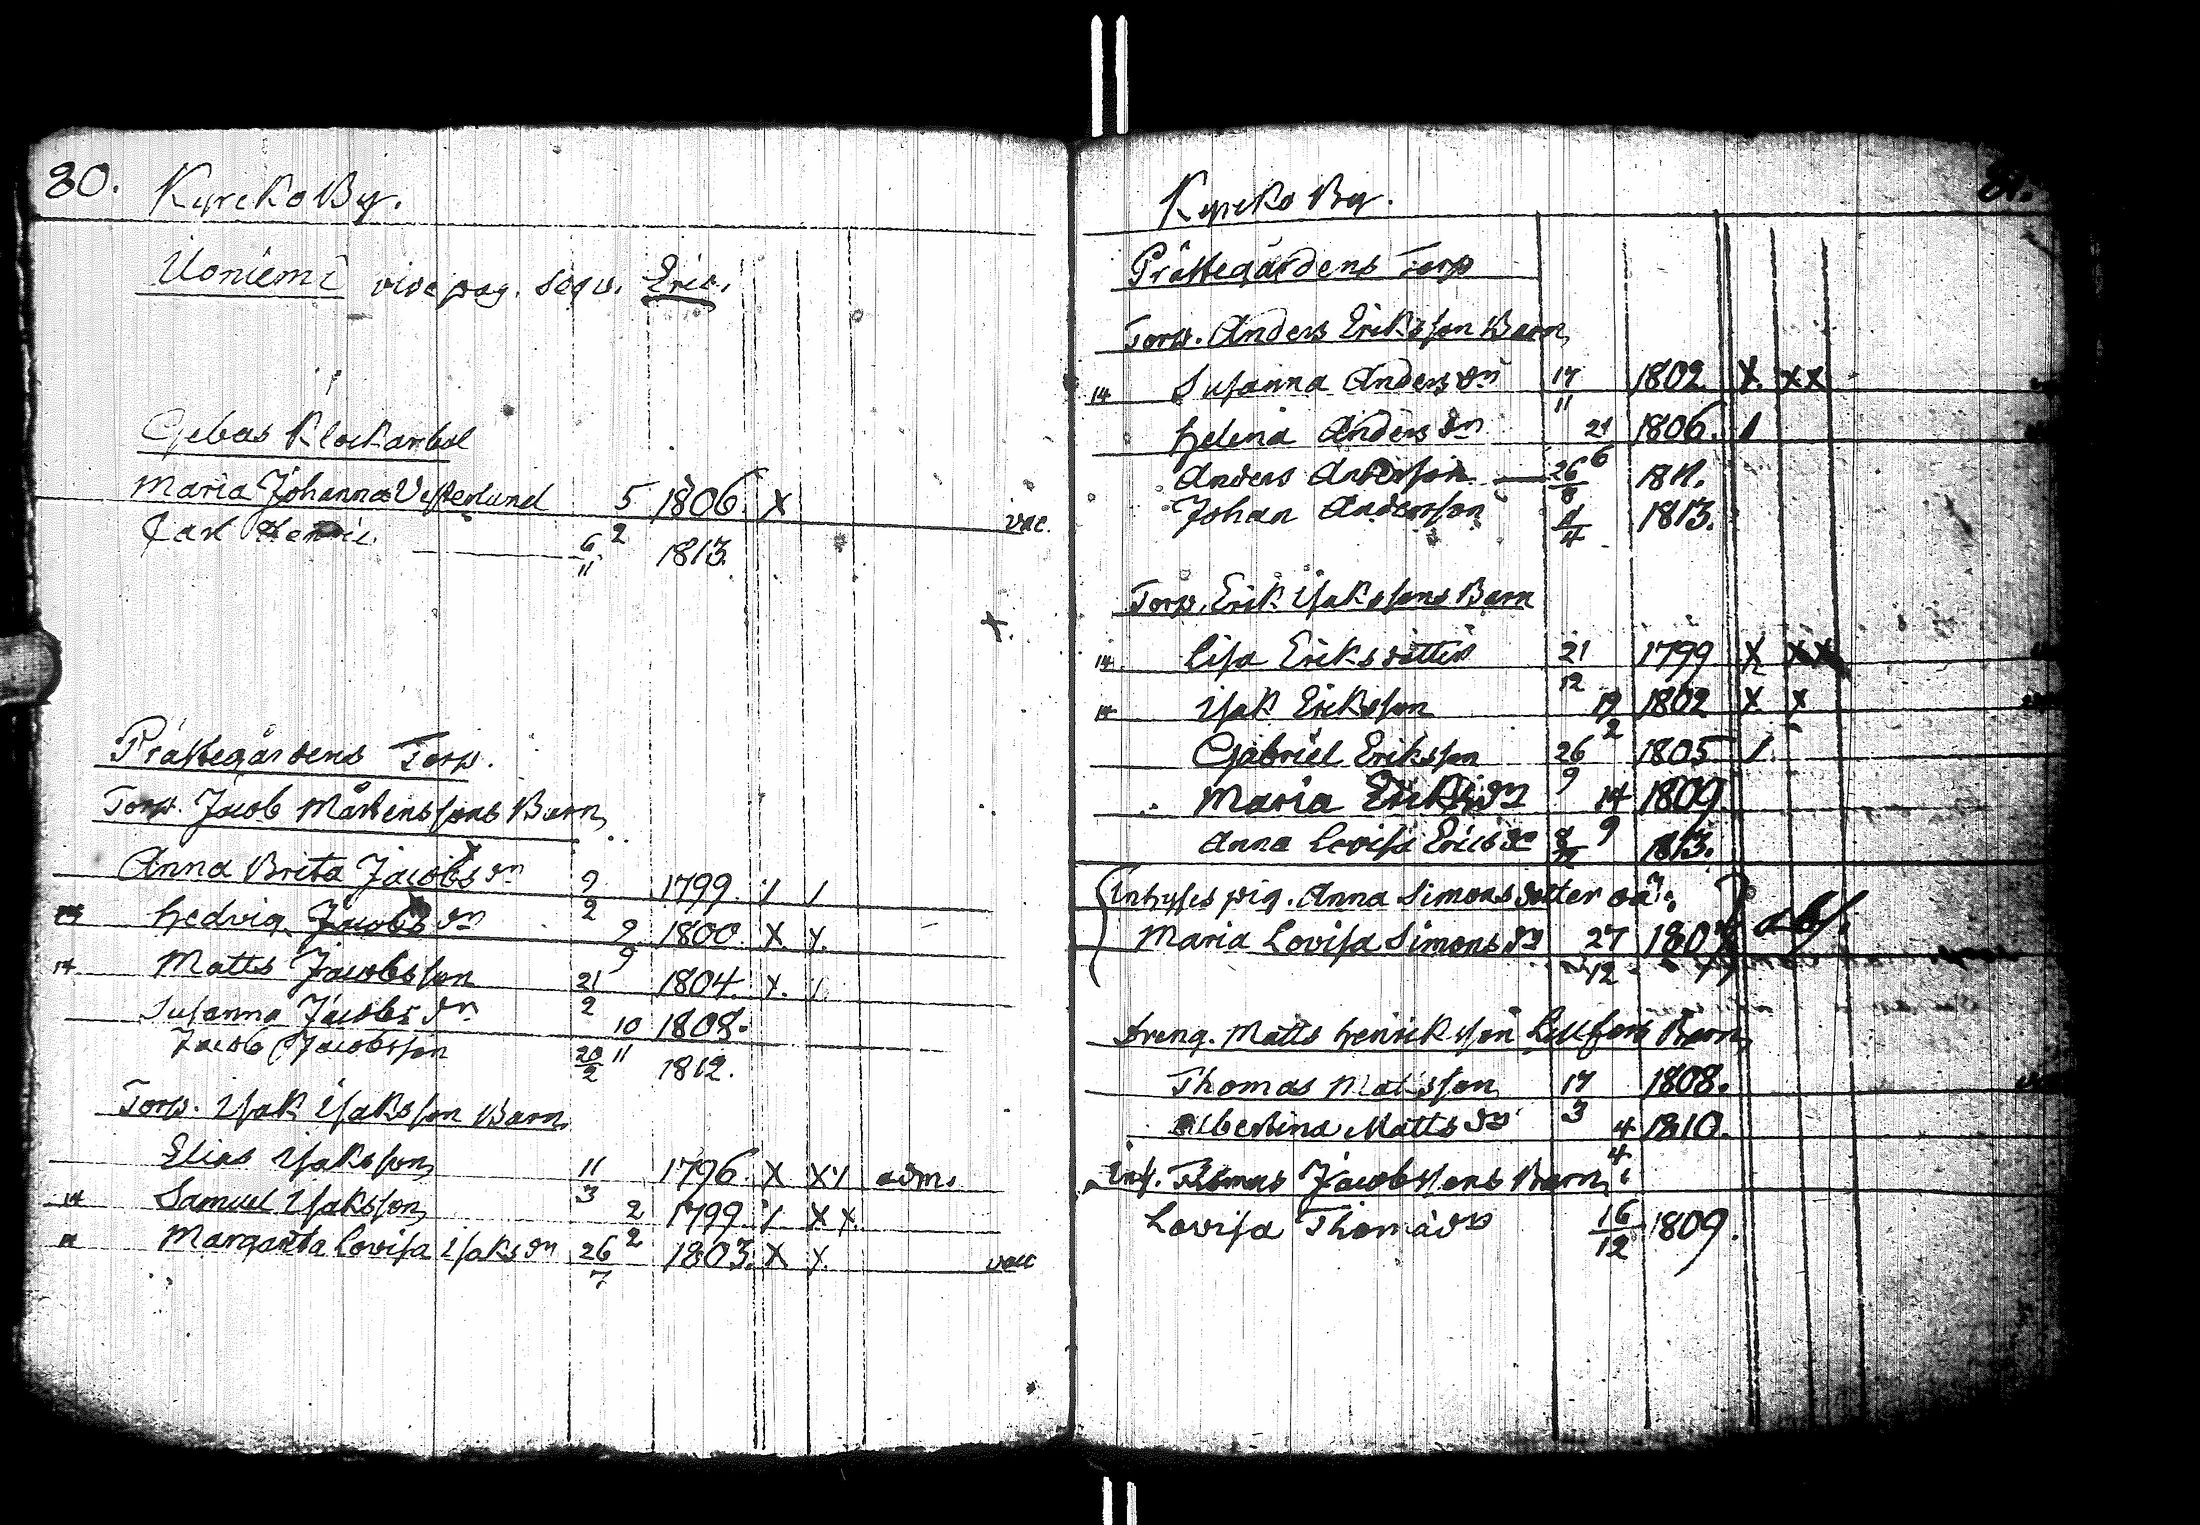 80. Kyrcko By.
Uoniemi vide pag. sequ. Eric.
Gebas Klockarbol
Maria Johanna Vesterlund 5/2 1806. X vac.
Carl Henric 6/11 1813.
X.
Prästegårdens Torp.
Torp. Jacob Mårtenssons Barn,
Anna Brita Jacobs dr 2/2 1799. / /
Hedvig Jacobs dr 9/9 1800. X X.
14 Matts Jacobsson 21/2 1804. X. /.
Susanna Jacobs dr 10/11 1808.
Jacob Jacobsson 20/2 1812.
Torp. Isak Isaksson Barn,
Elias Isaksson 11/3 1796. X XX adm.
14 Samuel Isaksson, 2/2 1799. / X X.
Margareta Lovisa Isaks dr 26/7 1803. X X. vacc
Kyrcko By. 81.
Prästegårdens Torp
Torp. Anders Eriksson Barn,
14 Susanna Anders dr 17/11 1802 X. XX
Helena Anders dr 21/6 1806. /
Anders Andersson 26/8 1811.
Johan Andersson 11/4 1813.
Torp. Erik Isakssons Barn
14. Lisa Eriksdotter 21/12 1799 X XX
14 Isak Eriksson 19/2 1802 X X
Gabriel Eriksson 26/9 1805 /.
Maria Eriks dr 14/9 1809.
Anna Lovisa Erics dr 1813.
Inhyses pig. Anna Simonsdotter oä:
Maria Lovisa Simons dr 27/12 abs.
Dreng. Matts Henriksson Barn,
Thomas Matsson 17/3 1808.
Albertina Matts dr 4/4 1810.
Inh. Thomas Jacobssons Barn:
Lovisa Thomä dr 16/12 1809.